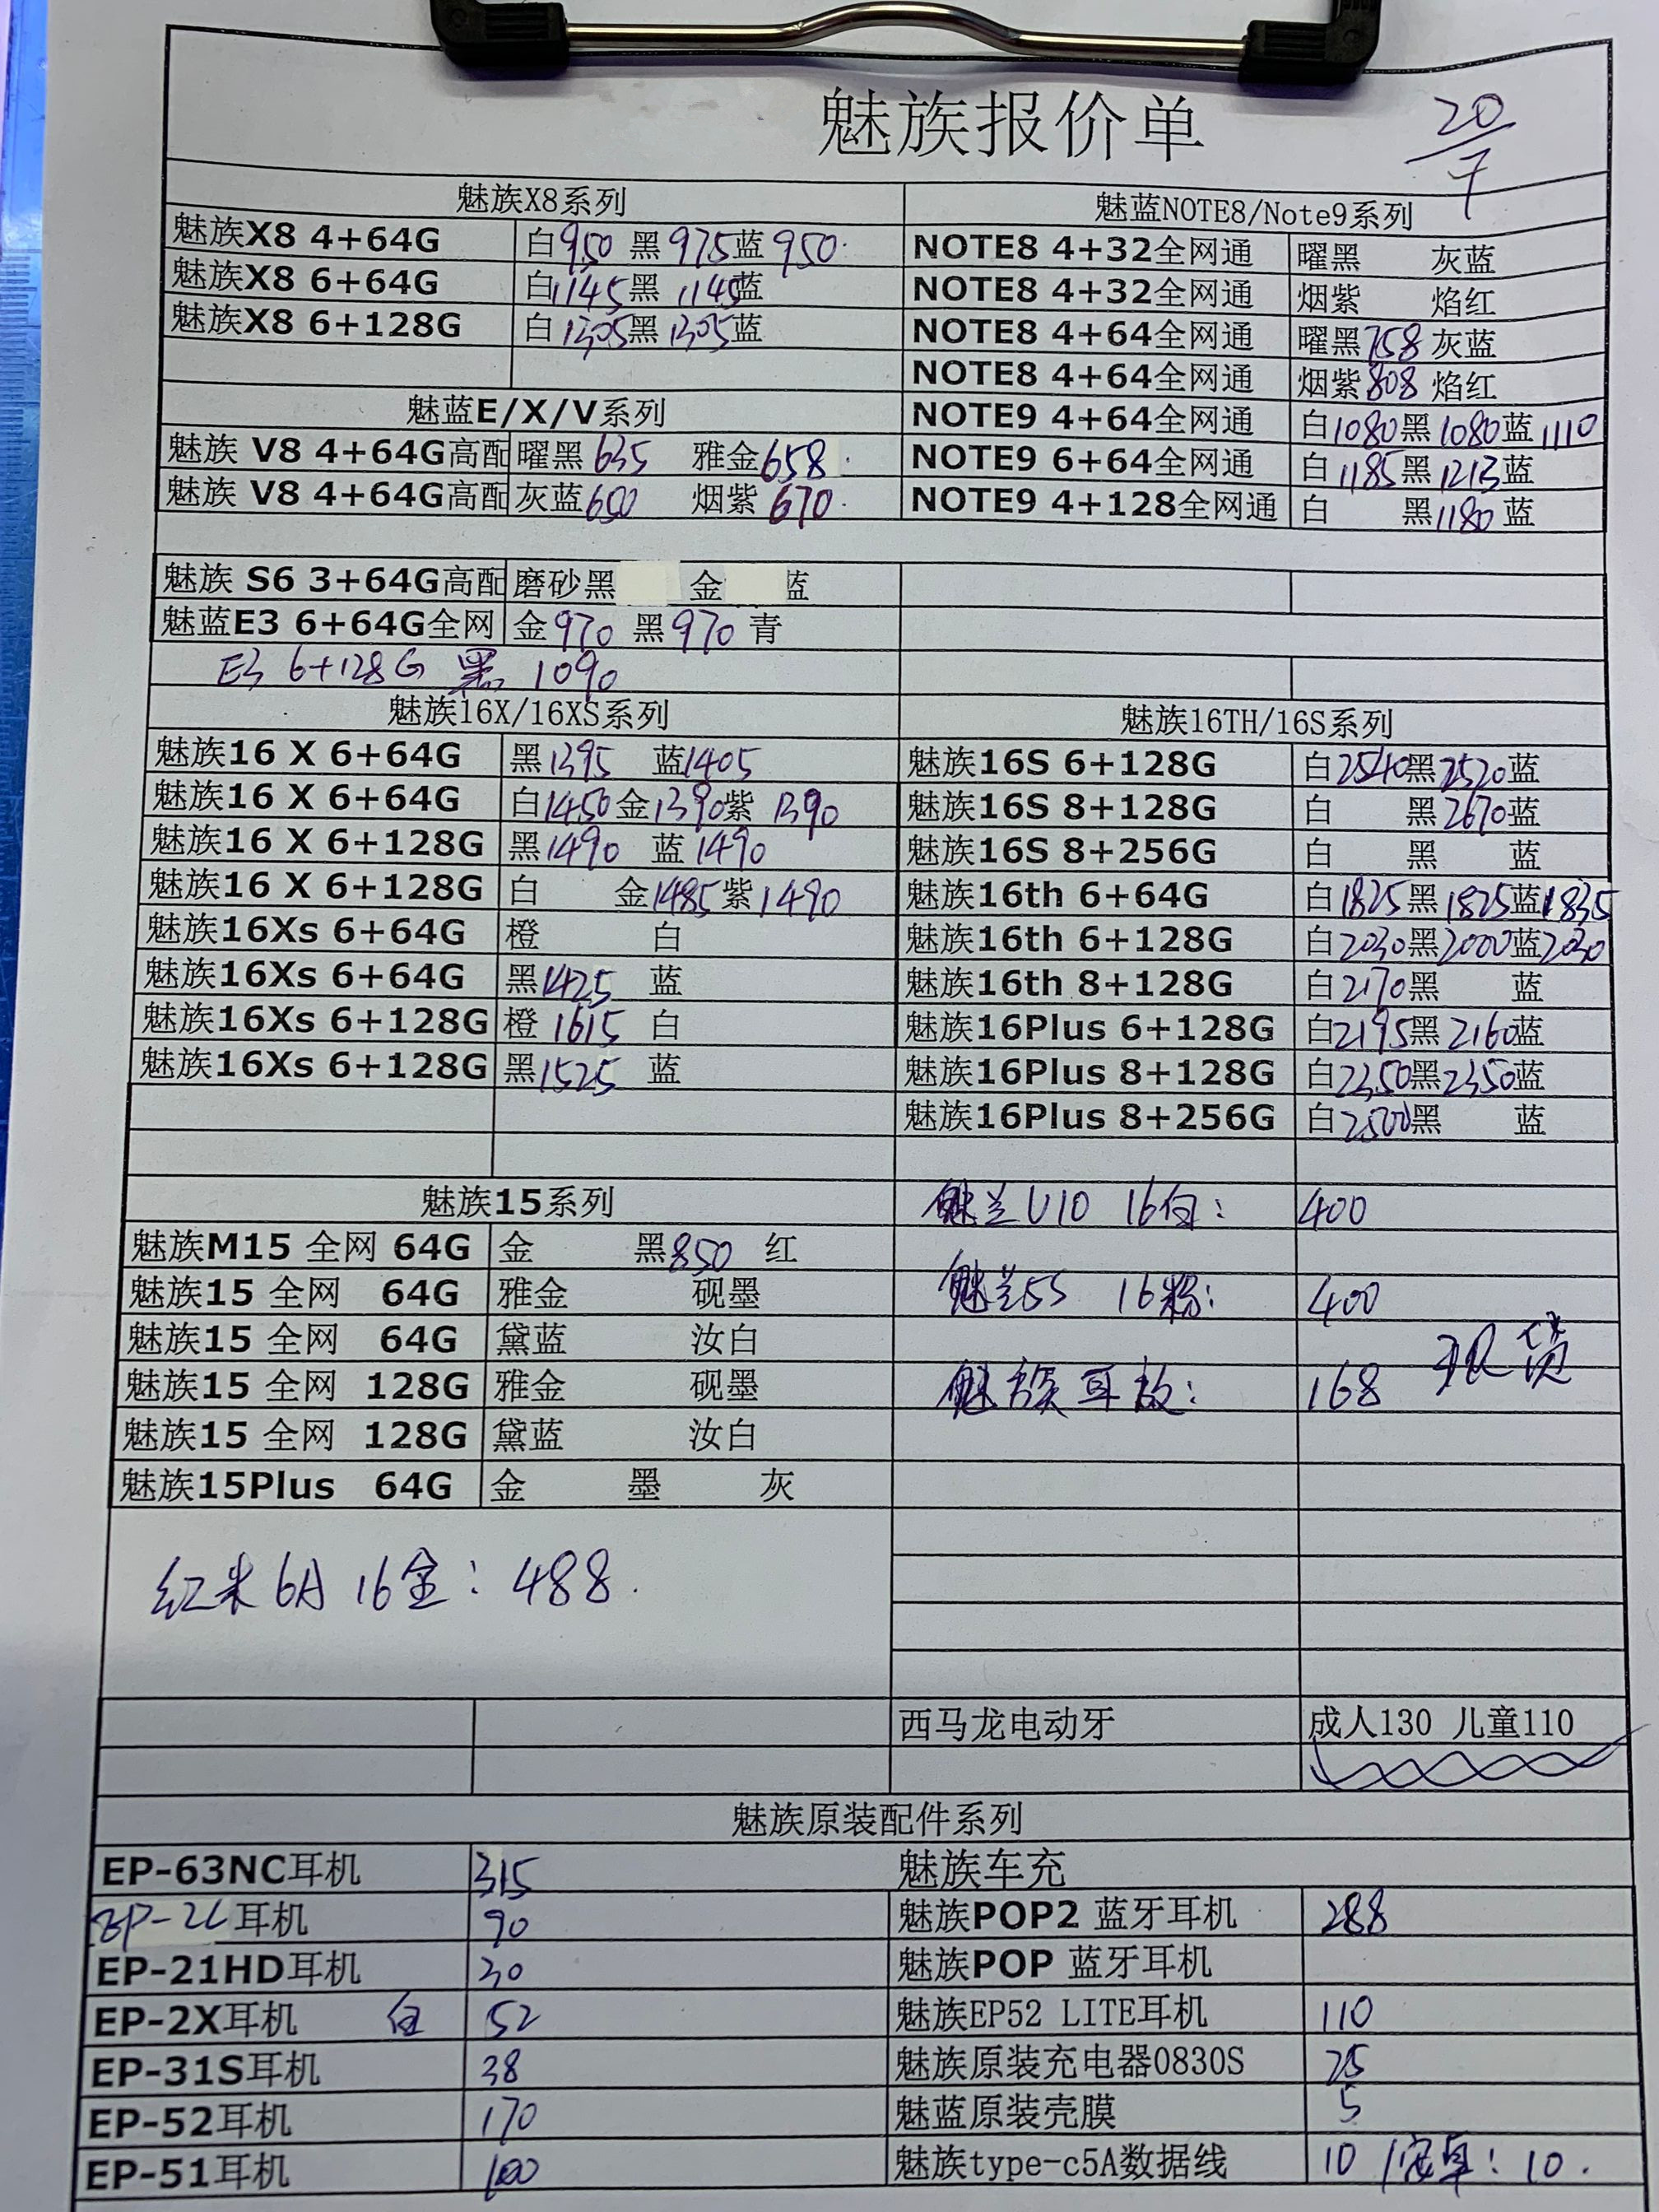 魅族报价单
20/7
魅族X8系列
魅族X8 4+64G 白950 黑975 蓝950
魅族X8 6+64G 白1145 黑1145 蓝
魅族X8 6+128G 白1305 黑1305 蓝
魅蓝E/X/V系列
魅族 V8 4+64G高配 曜黑635 雅金658
魅族 V8 4+64G高配 灰蓝650 烟紫670
魅族 S6 3+64G高配 磨砂黑 金 蓝
魅蓝E3 6+64G全网 金970 黑970 青
E3 6+128G 黑 1090
魅蓝NOTE8/Note9系列
NOTE8 4+32全网通 曜黑 灰蓝
NOTE8 4+32全网通 烟紫 焰红
NOTE8 4+64全网通 曜黑758 灰蓝
NOTE8 4+64全网通 烟紫808 焰红
NOTE9 4+64全网通 白1080 黑1080 蓝1110
NOTE9 6+64全网通 白1185 黑1213 蓝
NOTE9 4+128全网通 白 黑1180 蓝
魅族16X/16XS系列
魅族16 X 6+64G 黑1395 蓝1405
魅族16 X 6+64G 白1450 金1390 紫1390
魅族16 X 6+128G 黑1490 蓝1490
魅族16 X 6+128G 白 金1485 紫1490
魅族16Xs 6+64G 橙 白
魅族16Xs 6+64G 黑1425 蓝
魅族16Xs 6+128G 橙1615 白
魅族16Xs 6+128G 黑1525 蓝
魅族16TH/16S系列
魅族16S 6+128G 白2540 黑2520 蓝
魅族16S 8+128G 白 黑2670 蓝
魅族16S 8+256G 白 黑 蓝
魅族16th 6+64G 白1825 黑1825 蓝1835
魅族16th 6+128G 白2030 黑2000 蓝2030
魅族16th 8+128G 白2170 黑 蓝
魅族16Plus 6+128G 白2195 黑2160 蓝
魅族16Plus 8+128G 白2350 黑2350 蓝
魅族16Plus 8+256G 白2500 黑 蓝
魅族15系列
魅族M15 全网 64G 金 黑850 红
魅族15 全网 64G 雅金 砚墨
魅族15 全网 64G 黛蓝 汝白
魅族15 全网 128G 雅金 砚墨
魅族15 全网 128G 黛蓝 汝白
魅族15Plus 64G 金 墨 灰
魅兰U10 16白: 400
魅兰5S 16粉: 400
魅族耳放: 168 现货
红米6A 16金: 488.
西马龙电动牙 成人130 儿童110
魅族原装配件系列
EP-63NC耳机 315 魅族车充
EP-2L耳机 90 魅族POP2 蓝牙耳机 288
EP-21HD耳机 30 魅族POP 蓝牙耳机
EP-2X耳机 白 52 魅族EP52 LITE耳机 110
EP-31S耳机 38 魅族原装充电器0830S 25
EP-52耳机 170 魅蓝原装壳膜 5
EP-51耳机 100 魅族type-c5A数据线 10 /安卓: 10.